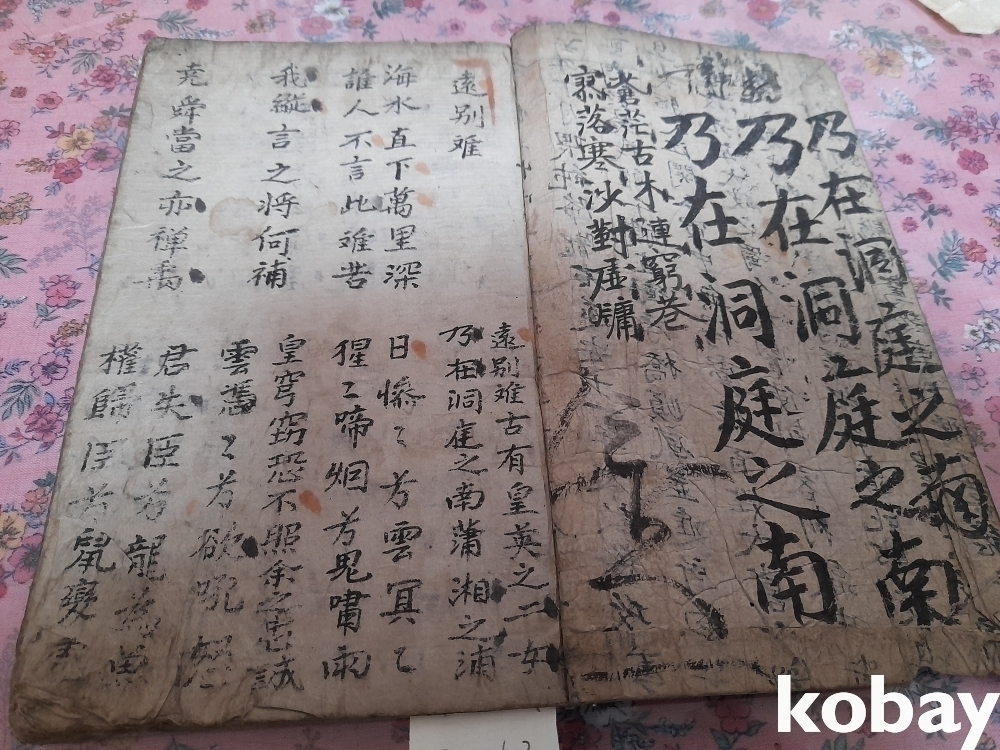 乃在洞庭之南
乃在洞庭之南
乃在洞庭之南
蒼茫古木漣窮巷
寥落寒沙對虛牖
遠别难
海水直下萬里深
誰人不言此难苦
我縱言之將何補
尭舜當之亦禅禹
遠别难古有皇英之二女
乃在洞庭之南蒲湘之浦
日慘〻兮雲冥〻
猩〻啼烟兮鬼嘯雨
皇穹窃恐不照余之忠誠
雲憑〻兮欲吼怒
君失臣兮龍為魚
權歸臣兮鼠變虎
kobay